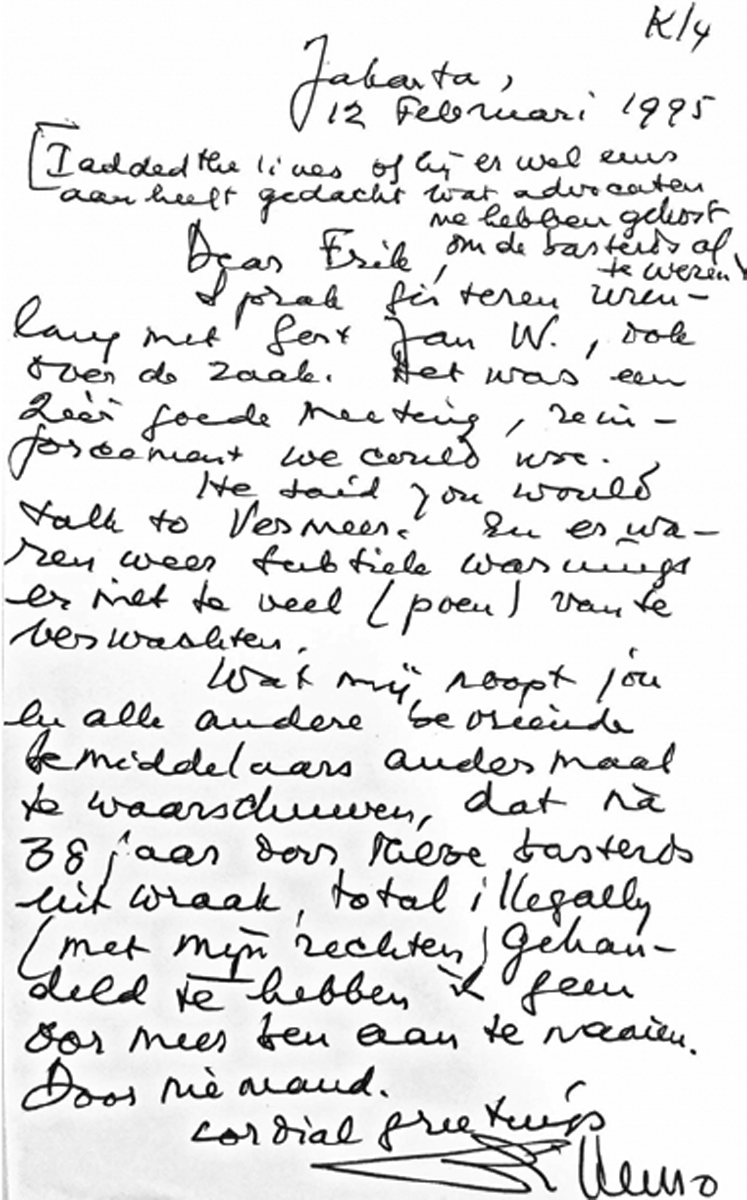 K/4
Jakarta,
12 Februari 1995
[I added the lines of hij er wel eens
aan heeft gedacht wat advocaten
me hebben gekost
om de basterds af
te weren]
Dear Erik,
Sprak gisteren uren-
lang met Gert Jan W., ook
over de zaak. Het was een
zéér goede meeting, rein-
forcement we could use.
He said you would
talk to Vermeer. En er wa-
ren weer subtiele warnings
er niet te veel (poen) van te
verwachten.
Wat mij noopt jou
en alle andere bevriende
bemiddelaars andermaal
te waarschuwen, dat nà
38 jaar door deze basterds
uit wraak, total illegally
(met mijn rechten) gehan-
deld te hebben ik geen
oor meer ben aan te naaien.
Door niemand.
cordial greetings